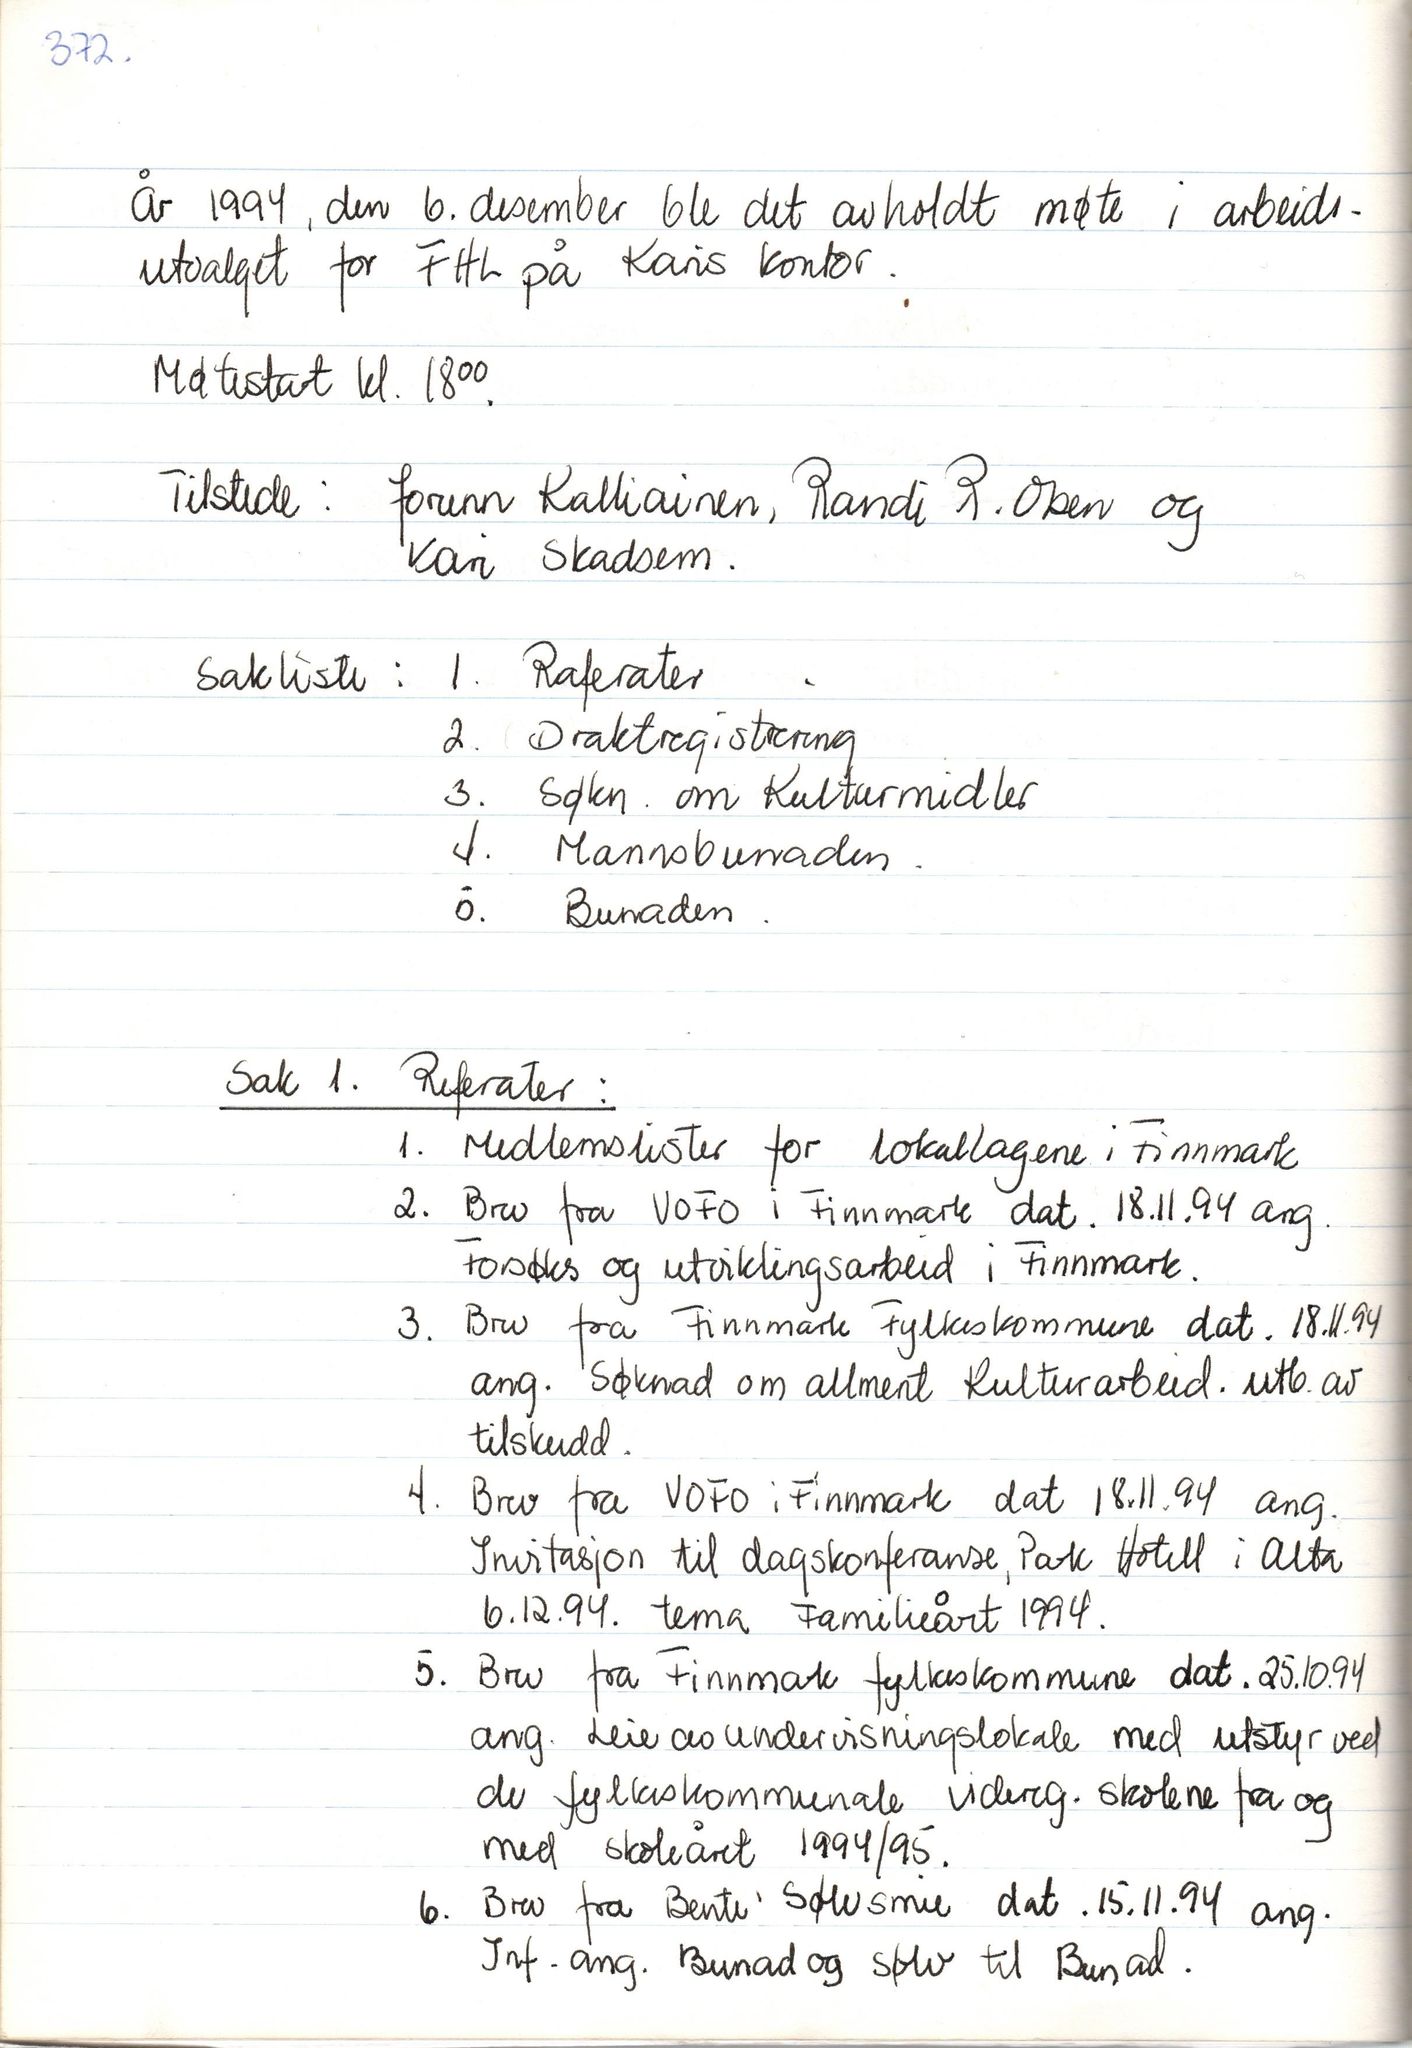 372.
År 1994, den 6. desember ble det avholdt møte i arbeids-
utvalget for FHL på Karis kontor.
Møtestart kl. 18⁰⁰.
Tilstede: Jorunn Kalliainen, Randi R. Olsen og
Kari Skadsem.
Sakliste: 1. Raferater
2. Draktregistrering
3. Søkn. om Kulturmidler
4. Mannsbunaden.
5. Bunaden.
Sak 1. Referater:
1. Medlemslister for lokallagene i Finnmark
2. Brev fra VOFO i Finnmark dat. 18.11.94 ang.
Forsøks og utviklingsarbeid i Finnmark.
3. Brev fra Finnmark Fylkeskommune dat. 18.11.94
ang. Søknad om allment Kulturarbeid. utb. av
tilskudd.
4. Brev fra VOFO i Finnmark dat 18.11.94 ang.
Invitasjon til dagskonferanse, Park Hotell i Alta
6.12.94. tema Familieårt 1994.
5. Brev fra Finnmark fylkeskommune dat. 25.10.94
ang. Leie av undervisningslokale med utstyr ved
de fylkeskommunale videreg. skolene fra og
med skoleåret 1994/95.
6. Brev fra Bente' Sølvsmie dat. 15.11.94 ang.
Inf. ang. Bunad og sølv til Bunad.